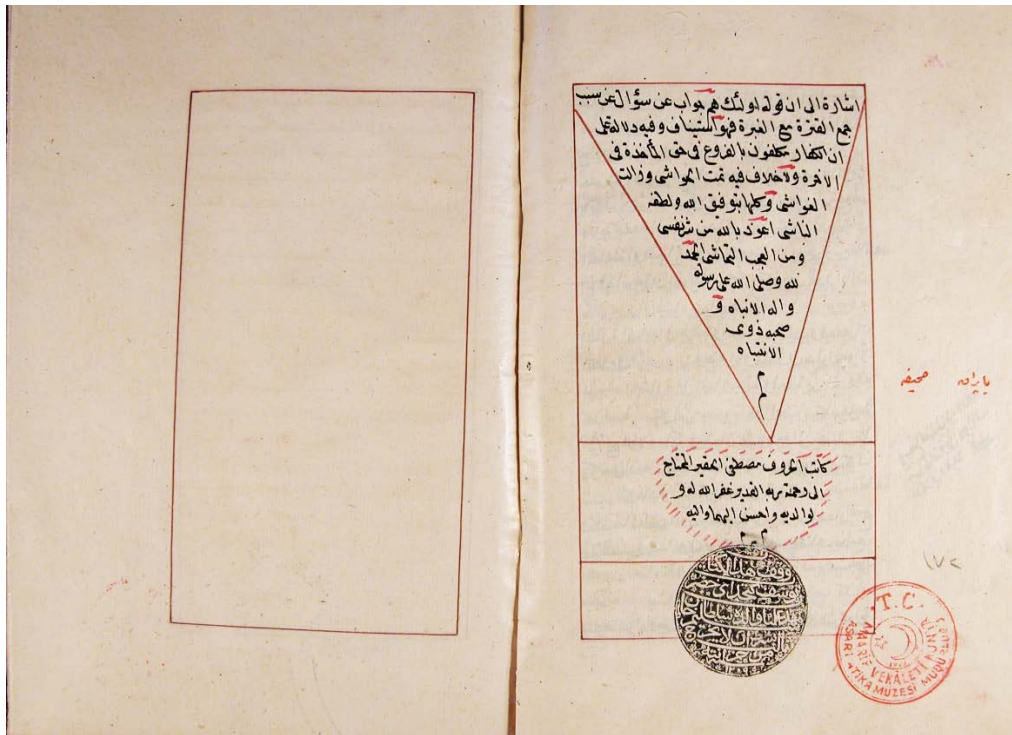 اشارة الى ان قوله اولئك هم جواب عن سؤال عن سبب
جمع القترة مع الغبرة فهو استيناف وفيه دلالة على
ان الكفار مكلفون بالفروع فى حق المأخذة فى
الاخرة ولاخلاف فيه تمت الحواشى وزالت
الغواشى وكلها بتوفيق الله ولطفه
الناشى اعوذ بالله من شر نفسى
ومن العجب التحاشى الحمد
لله وصلى الله على رسوله
واله الانباه و
صحبه ذوى
الانتباه
م
كاتب الحروف مصطفى الحقير المحتاج
الى رحمة ربه القدير غفر الله له و
لوالديه واحسن اليهما واليه
م م م
صحيفه
١٧٢
T.C.
MAARİF VEKALETİ
ASARI ATİKA MUZESİ MUDU